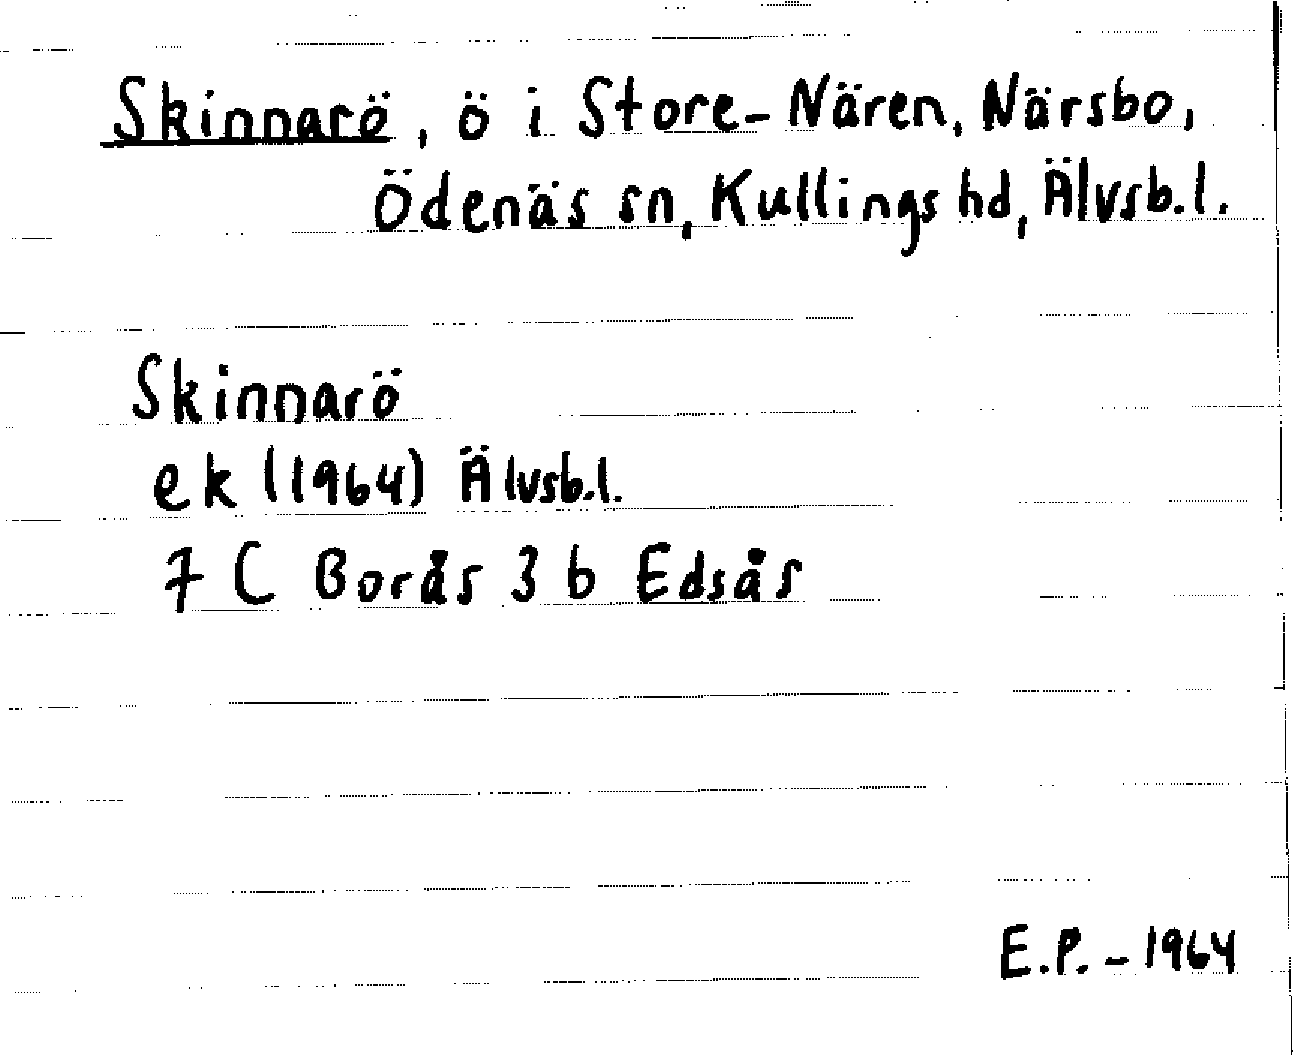 Skinnarö, ö i Store-Nären, Närsbo,
Ödenäs sn, Kullings hd, Älvsb.l.
Skinnarö
ek (1964) Älvsb.l.
7 C Borås 3 b Edsås
E.P. - 1964